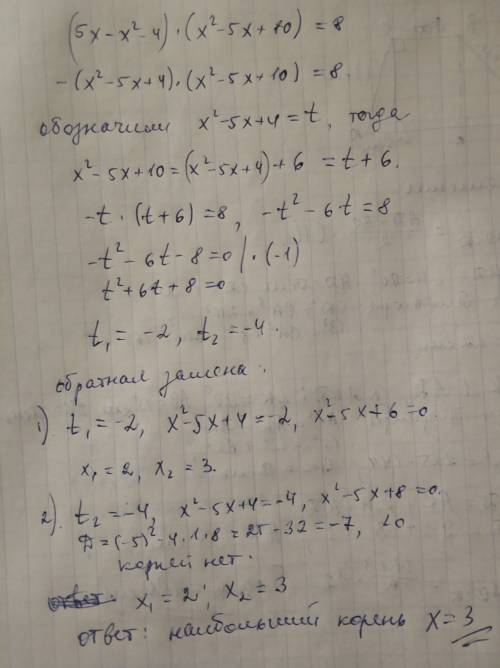 (5x-x²-4)·(x²-5x+10)=8
-(x²-5x+4)·(x²-5x+10)=8
обозначим x²-5x+4=t, тогда
x²-5x+10=(x²-5x+4)+6=t+6.
-t·(t+6)=8, -t²-6t=8
-t²-6t-8=0 |·(-1)
t²+6t+8=0
t₁=-2, t₂=-4.
обратная замена:
1) t₁=-2, x²-5x+4=-2, x²-5x+6=0.
x₁=2, x₂=3.
2). t₂=-4, x²-5x+4=-4, x²-5x+8=0.
Д=(-5)²-4·1·8=25-32=-7, <0
корней нет.
x₁=2; x₂=3
ответ: наибольший корень x=3